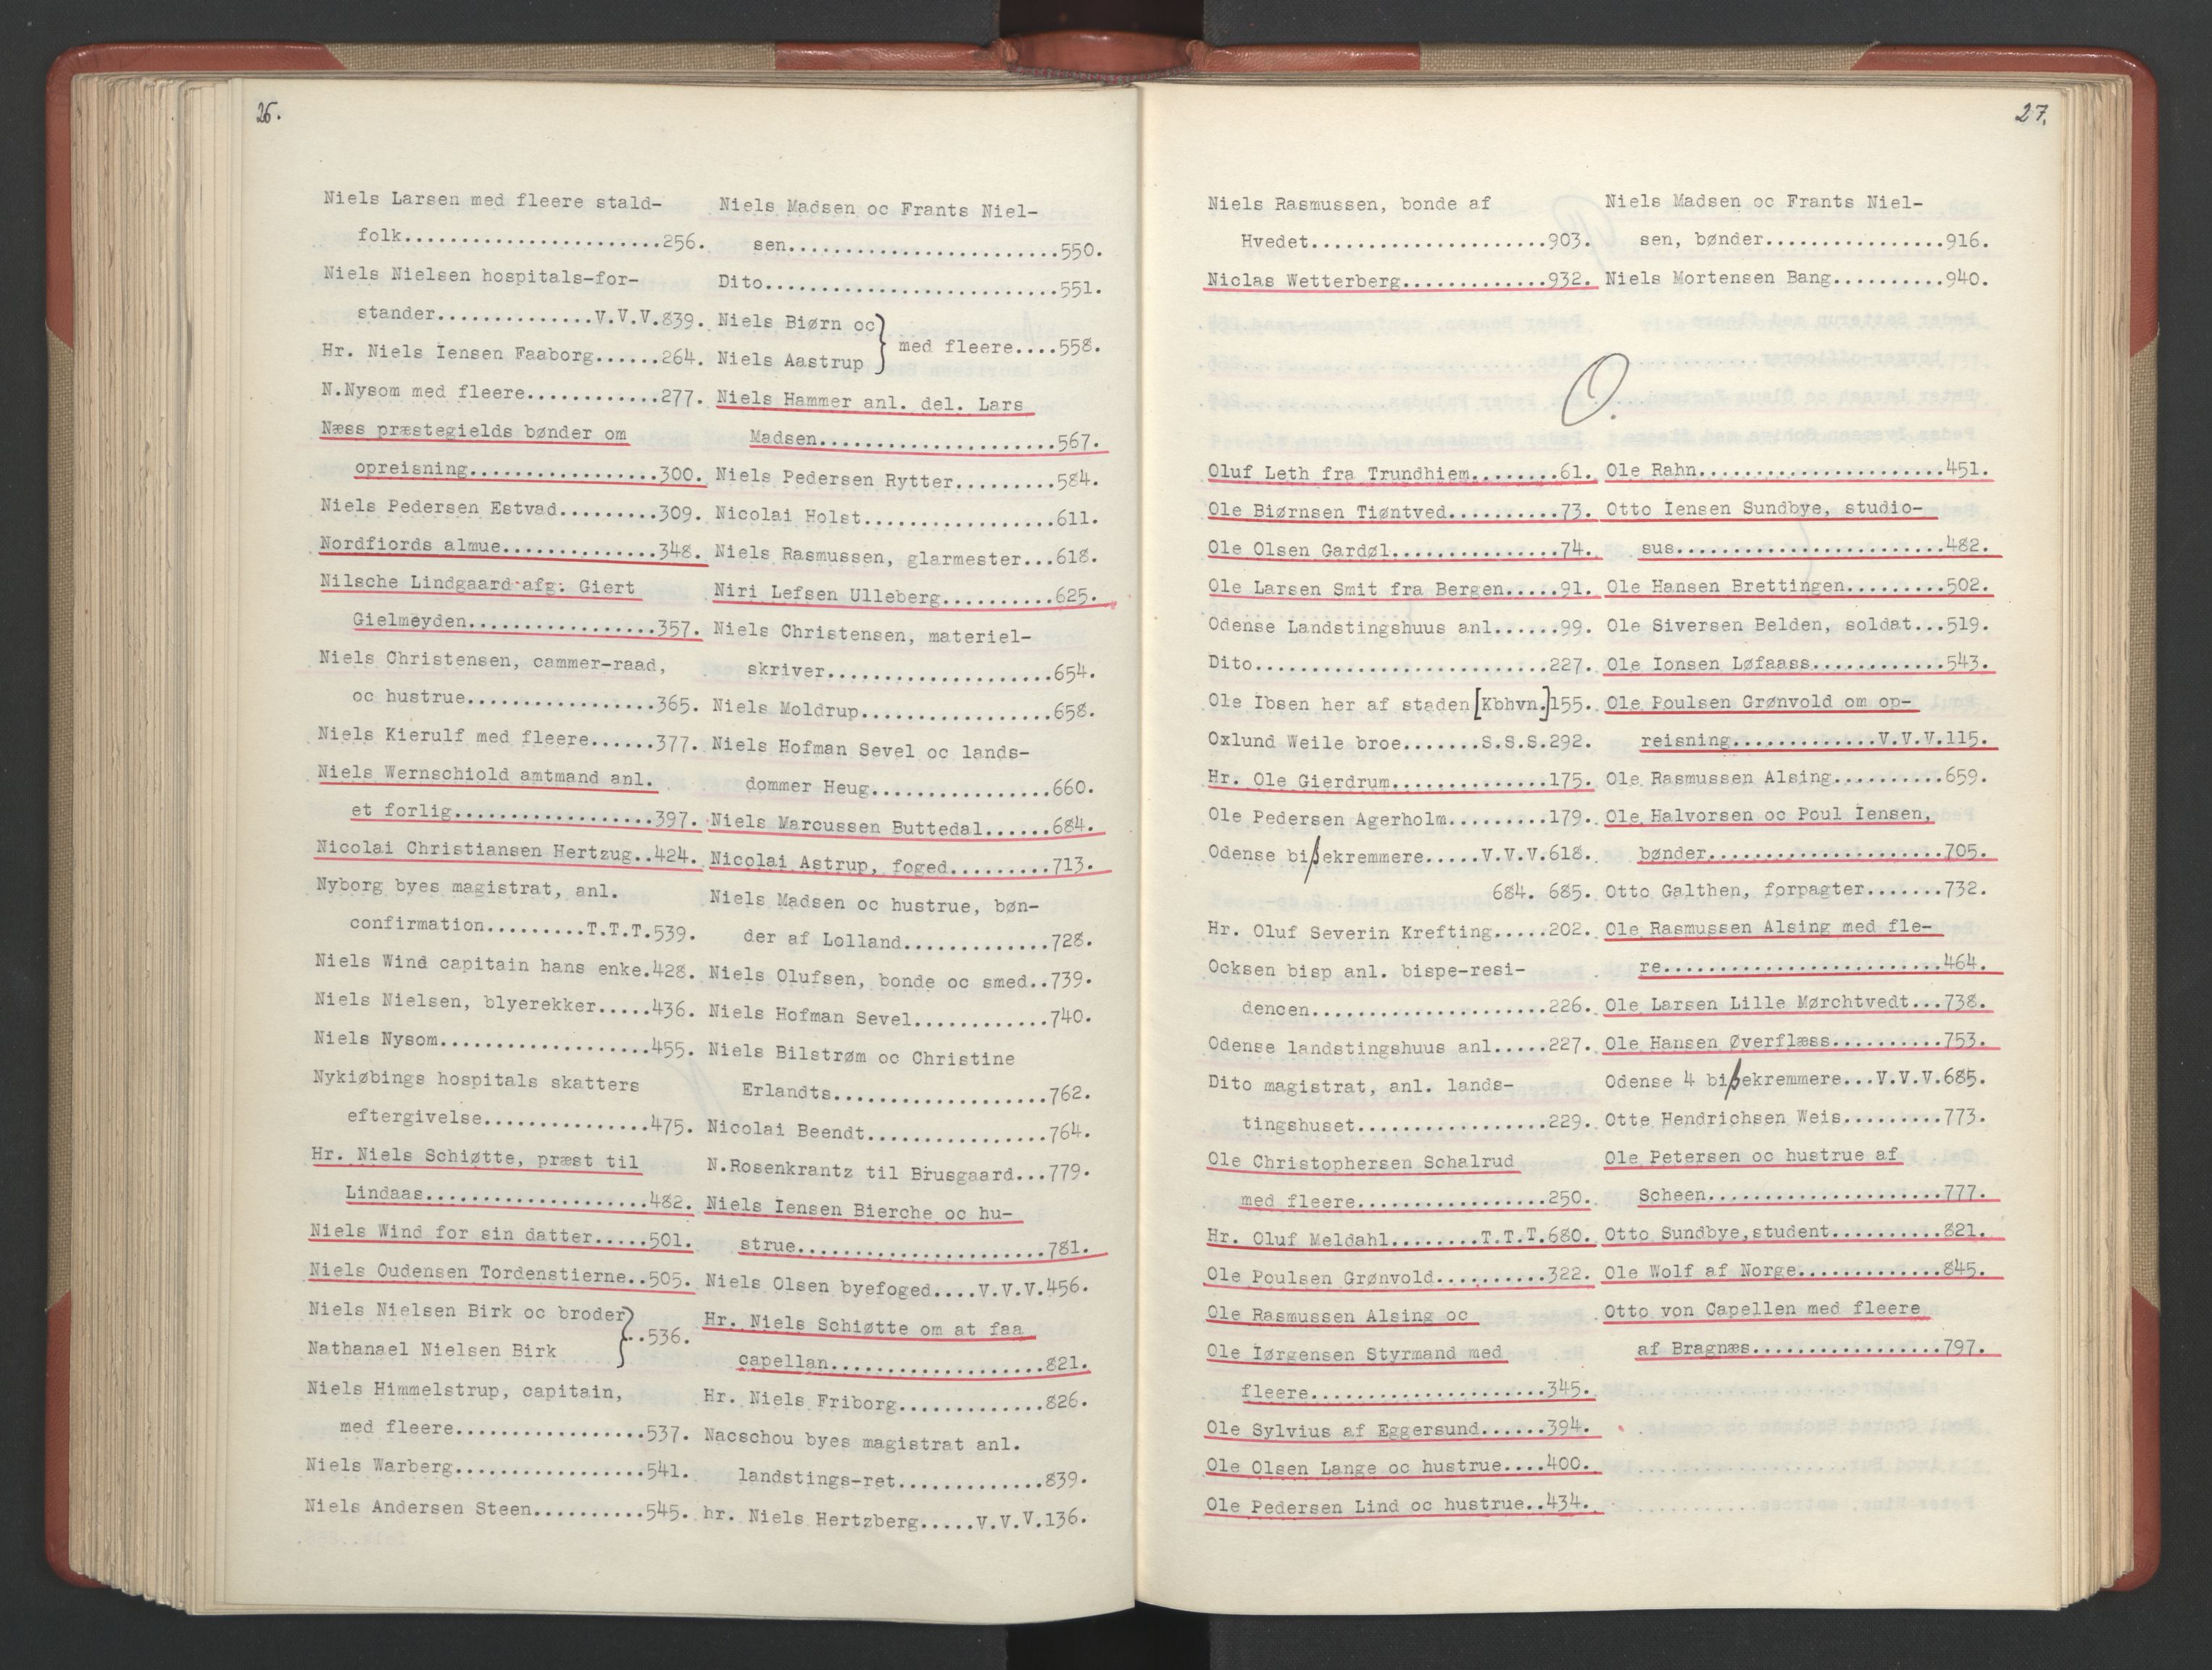 26.
Niels Larsen med fleere stald-
folk.......................256.
Niels Nielsen hospitals-for-
stander..............V.V.V.839.
Hr. Niels Iensen Faaborg......264.
N.Nysom med fleere............277.
Næss præstegields bønder om
opreisning.................300.
Niels Pedersen Estvad.........309.
Nordfiords almue..............348.
Nilsche Lindgaard afg. Giert
Gielmeyden.................357.
Niels Christensen, cammer-raad,
oc hustrue.................365.
Niels Kierulf med fleere......377.
Niels Wernschiold amtmand anl.
et forlig..................397.
Nicolai Christiansen Hertzug..424.
Nyborg byes magistrat, anl.
confirmation.........T.T.T.539.
Niels Wind capitain hans enke.428.
Niels Nielsen, blyerekker.....436.
Niels Nysom...................455.
Nykiøbings hospitals skatters
eftergivelse...............475.
Hr. Niels Schiøtte, præst til
Lindaas....................482.
Niels Wind for sin datter.....501.
Niels Oudensen Tordenstierne..505.
Niels Nielsen Birk oc broder
Nathanael Nielsen Birk } ..536.
Niels Himmelstrup, capitain,
med fleere.................537.
Niels Warberg.................541.
Niels Andersen Steen..........545.
Niels Madsen oc Frants Niel-
sen........................550.
Dito..........................551.
Niels Biørn oc
Niels Aastrup } med fleere....558.
Niels Hammer anl. del. Lars
Madsen.....................567.
Niels Pedersen Rytter.........584.
Nicolai Holst.................611.
Niels Rasmussen, glarmester...618.
Niri Lefsen Ulleberg..........625.
Niels Christensen, materiel-
skriver....................654.
Niels Moldrup.................658.
Niels Hofman Sevel oc lands-
dommer Heug................660.
Niels Marcussen Buttedal......684.
Nicolai Astrup, foged.........713.
Niels Madsen oc hustrue, bøn-
der af Lolland.............728.
Niels Olufsen, bonde oc smed..739.
Niels Hofman Sevel............740.
Niels Bilstrøm oc Christine
Erlandts...................762.
Nicolai Beendt................764.
N.Rosenkrantz til Brusgaard...779.
Niels Iensen Bierche oc hu-
strue......................781.
Niels Olsen byefoged....V.V.V.456.
Hr. Niels Schiøtte om at faa
capellan...................821.
Hr. Niels Friborg.............826.
Nacschou byes magistrat anl.
landstings-ret.............839.
hr. Niels Hertzberg.....V.V.V.136.
27.
Niels Rasmussen, bonde af
Hvedet.....................903.
Niclas Wetterberg.............932.
Niels Madsen oc Frants Niel-
sen, bønder................916.
Niels Mortensen Bang..........940.
O.
Oluf Leth fra Trundhiem........61.
Ole Biørnsen Tiøntved..........73.
Ole Olsen Gardøl...............74.
Ole Larsen Smit fra Bergen.....91.
Odense Landstingshuus anl......99.
Dito..........................227.
Ole Ibsen her af staden [Kbhvn.]155.
Oxlund Weile broe.......S.S.S.292.
Hr. Ole Gierdrum..............175.
Ole Pedersen Agerholm.........179.
Odense bißekremmere.....V.V.V.618.
684. 685.
Hr. Oluf Severin Krefting.....202.
Ocksen bisp anl. bispe-resi-
dencen.....................226.
Odense landstingshuus anl.....227.
Dito magistrat, anl. lands-
tingshuset.................229.
Ole Christophersen Schalrud
med fleere.................250.
Hr. Oluf Meldahl........T.T.T.680.
Ole Poulsen Grønvold..........322.
Ole Rasmussen Alsing oc
Ole Iørgensen Styrmand med
fleere.....................345.
Ole Sylvius af Eggersund......394.
Ole Olsen Lange oc hustrue....400.
Ole Pedersen Lind oc hustrue..434.
Ole Rahn......................451.
Otto Iensen Sundbye, studio-
sus........................482.
Ole Hansen Brettingen.........502.
Ole Siversen Belden, soldat...519.
Ole Ionsen Løfaass............543.
Ole Poulsen Grønvold om op-
reisning.............V.V.V.115.
Ole Rasmussen Alsing..........659.
Ole Halvorsen oc Poul Iensen,
bønder.....................705.
Otto Galthen, forpagter.......732.
Ole Rasmussen Alsing med fle-
re.........................464.
Ole Larsen Lille Mørchtvedt...738.
Ole Hansen Øverflæss..........753.
Odense 4 bißekremmere...V.V.V.685.
Otte Hendrichsen Weis.........773.
Ole Petersen oc hustrue af
Scheen.....................777.
Otto Sundbye,student..........821.
Ole Wolf af Norge.............845.
Otto von Capellen med fleere
af Bragnæs.................797.